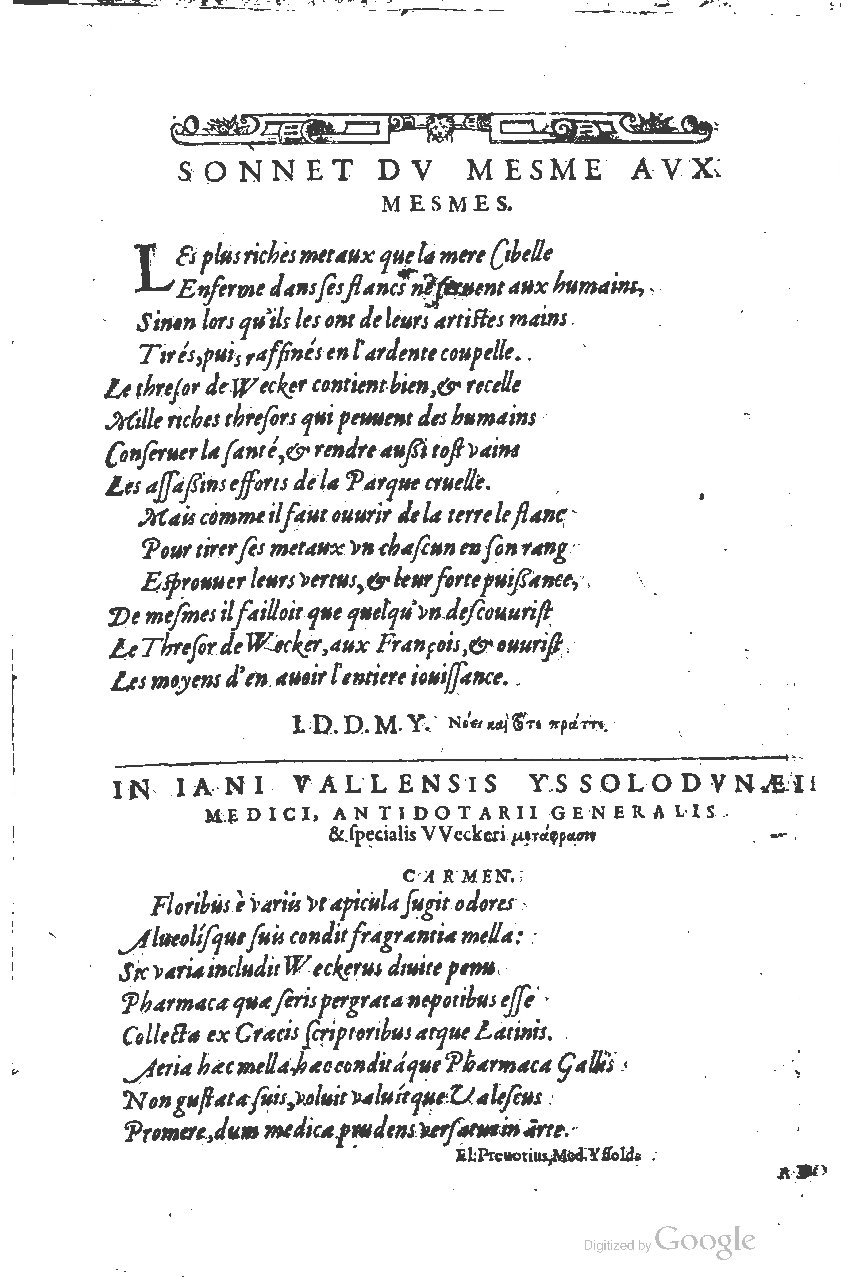 SONNET DV MESME AVX
MESMES.
LEs plus riches metaux que la mere Cibelle
Enferme dans ses flancs ne seruent aux humains,
Sinon lors qu'ils les ont de leurs artistes mains
Tirés, puis raffinés en l'ardente coupelle.
Le thresor de Wecker contient bien, & recelle
Mille riches thresors qui peuuent des humains
Conseruer la santé, & rendre aussi tost vains
Les assassins efforts de la Parque cruelle.
Mais comme il faut ouurir de la terre le flanc
Pour tirer ses metaux vn chascun en son rang
Esprouuer leurs vertus, & leur forte puissance,
De mesmes il failloit que quelqu'vn descouurist
Le Thresor de Wecker, aux François, & ouurist
Les moyens d'en auoir l'entiere iouissance.
I. D. D. M. Y. Νόει καὶ πράττε.
IN IANI VALLENSIS YSSOLODVNÆI
MEDICI, ANTIDOTARII GENERALIS
& specialis VVeckeri μετάφρασιν
CARMEN.
Floribus è variis vt apicula sugit odores
Alueolísque suis condit fragrantia mella:
Sic varia includit Weckerus diuite penu
Pharmaca quæ seris pergrata nepotibus esse
Collecta ex Græcis scriptoribus atque Latinis.
Aeria hæc mella, hæc conditáque Pharmaca Gallis
Non gustata suis, voluit valuítque Valescus
Promere, dum medica prudens versatur in arte.
El. Preuotius, Med. Yssold.
Digitized by Google